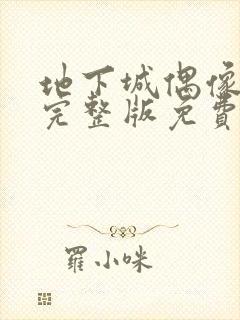 地下城偶像
完整版免費
羅小咪